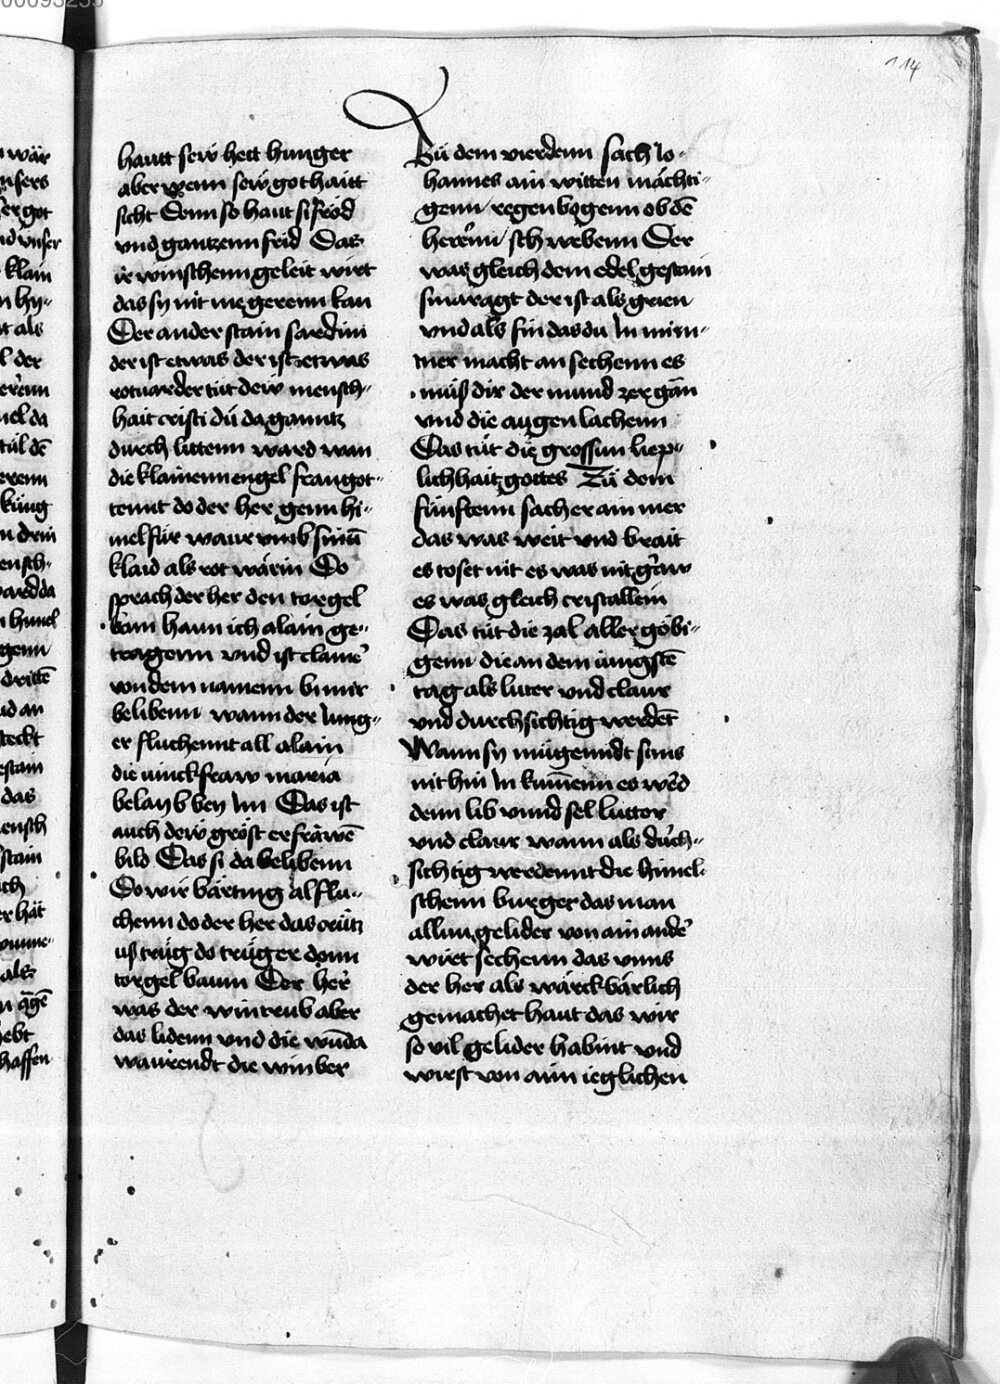 114
hautt sew hett hunger
aber wenn sew got haitt
sicht Denn so haut si fröd
vnd gantzenn frid Das
ir winschenn geleit wirt
das sy nit me gerenn kan
Der ander stain sardini
der ist etwas der ist etwas
rotuar der tüt dew mensch-
hait cristi dú da gauntz
durch littenn ward wan
die klainenn engel fraugot-
tennt do der her genn hi-
mel für waur vmb sinū
klaid als rot wärin Do
sprach der her den torgel
bom haun ich alain ge-
tragenn vnd ist clamē
von dem namenn binir
belibenn wann der Jung-
er fluchennt all alain
die iunckfraw maria
belayb bey Im Das ist
auch dew gröst er fräwē
bild Das si da belibenn
Do wir bärting al flu-
chenn do der her das crütz
uß trüg do trüg er donn
torgel baum Der her
was der wintrub aber
das lidenn vnd die wūda
waurendt die winber
Zü dem vierdenn sach Jo-
hannes ain witten mächti-
genn regenbogenn ob dē
herenn schwebenn Der
was gleich dem edelgestain
smaragt der ist als grien
vnd als fin das du In nim-
mer macht an sechenn es
müß dir der mund zergän
vnd die augen lachenn
Das tüt die grossun liep-
lichhait gottes Zü dem
fünftenn sach er ain mer
das was weit vnd brait
es toset nit es was nit graw
es was gleich cristallein
Das tüt die zal aller göbi-
genn die an dem iungstē
tag als luter vnd claur
vnd durchsichtig werdēt
Wann sy mügenndt suns
nit hin In kumenn es wēd
denn lib vnnd sel lutter
vnd claur wann als durch-
sichtig werdennt die himel-
schenn burger das man
allun gelider von ain andē
wirt sechenn das vnns
der her als wärckbärlich
gemachet haut das wir
so vil gelider habint vnd
wirst von aim ieglichen